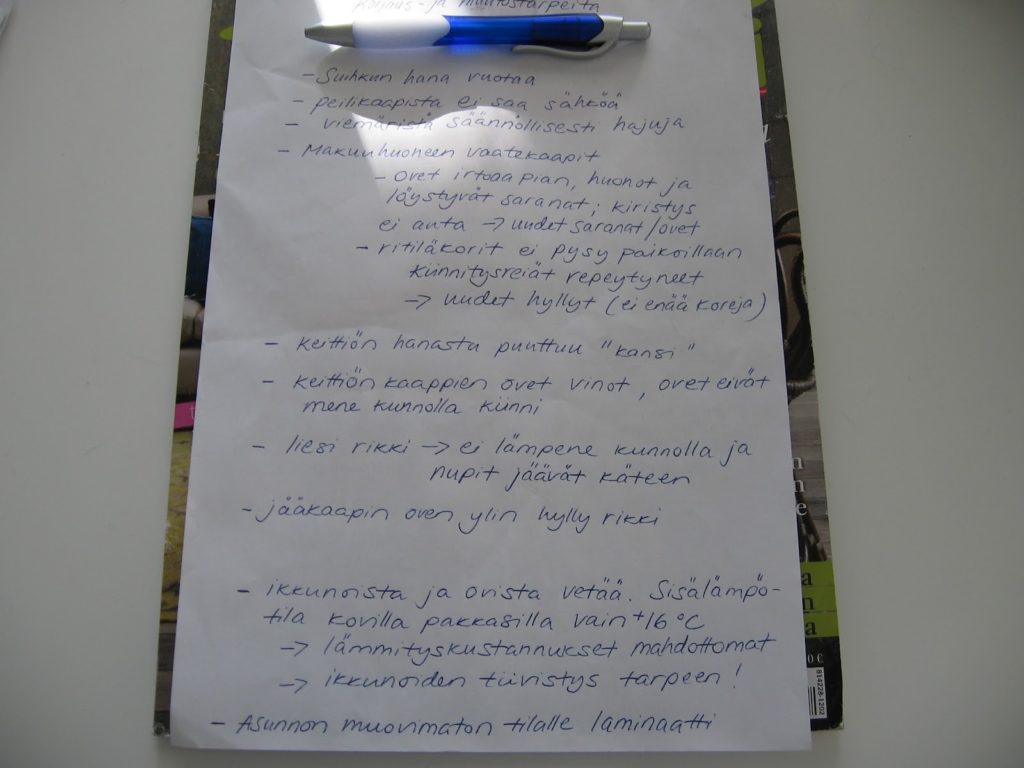 Korjaus- ja muutostarpeita
- Suihkun hana vuotaa
- peilikaapista ei saa sähköä
- viemäristä säännöllisesti hajuja
- Makuuhuoneen vaatekaapit
- ovet irtoaapian, huonot ja
löystyvät saranat; kiristys
ei auta -> uudet saranat/ovet
- ritiläkorit ei pysy paikoillaan
kiinnitysreiät repeytyneet
-> uudet hyllyt (ei enää koreja)
- keittiön hanasta puuttuu "kansi"
- keittiön kaappien ovet vinot, ovet eivät
mene kunnolla kiinni
- liesi rikki -> ei lämpene kunnolla ja
nupit jäävät käteen
- jääkaapin oven ylin hylly rikki
- ikkunoista ja ovista vetää. Sisälämpö-
tila kovilla pakkasilla vain +16 °C
-> lämmityskustannukset mahdottomat
-> ikkunoiden tiivistys tarpeen!
- Asunnon muovimaton tilalle laminaatti
0 €
814228-1202